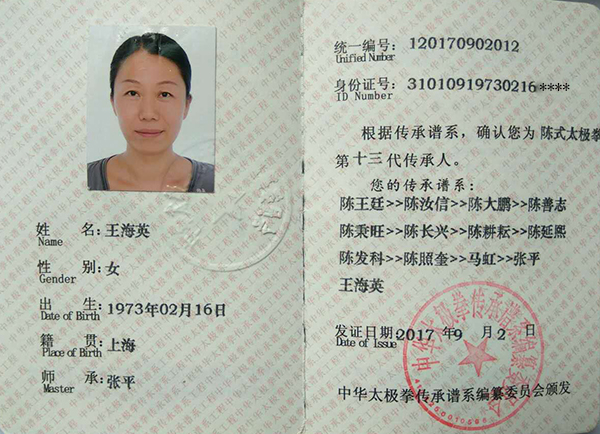 姓 名：王海英
Name
性 别：女
Gender
出 生：1973年02月16日
Date of Birth
籍 贯：上海
Place of Birth
师 承：张平
Master
统一编号：120170902012
Unified Number
身份证号：31010919730216****
ID Number
根据传承谱系，确认您为陈式太极拳
第十三代传承人。
您的传承谱系：
陈王廷>>陈汝信>>陈大鹏>>陈善志
陈秉旺>>陈长兴>>陈耕耘>>陈延熙
陈发科>>陈照奎>>马虹>>张平
王海英
发证日期：2017年9月2日
Date of Issue
中华太极拳传承谱系编纂委员会
中华太极拳传承谱系编纂委员会颁发